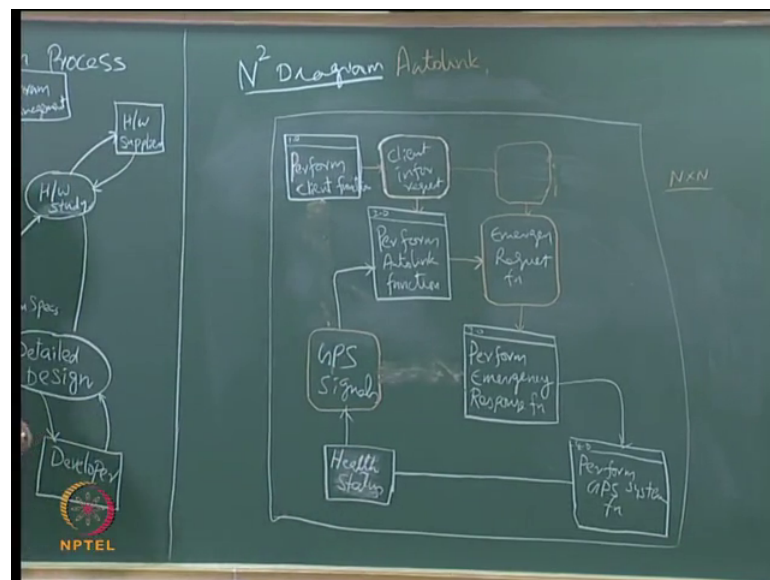 Process
H/W
Supplier
H/W
Study
Specs
Detailed
Design
Developer
NPTEL
N² Diagram Autolink,
N×N
1.0
Perform
Client function
Client
infor
request
2.0
Perform
Autolink
function
Emergen
Request
fn
3.0
Perform
Emergency
Response fn
GPS
Signals
Health
Status
4.0
Perform
GPS System
fn